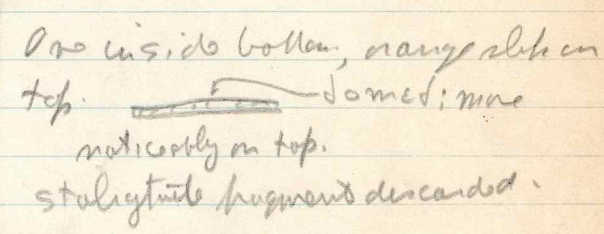 One inside bottom, orange slab on
top. domed; more
noticeably on top.
stalagtite fragment discarded.